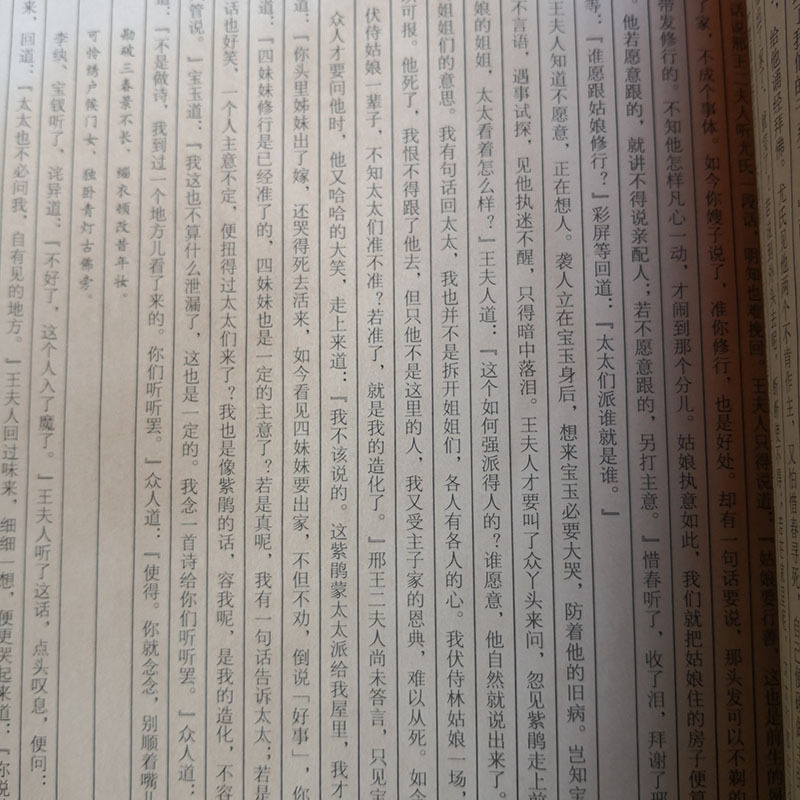 话说邢王二夫人听尤氏一段话，明知也难挽回。王夫人只得说道：『姑娘要行善，这也是前生的
了家，不成个事体。如今你嫂子说了，准你修行，也是好处。却有一句话要说，那头发可以不剃的
带发修行的。不知他怎样凡心一动，才闹到那个分儿。姑娘执意如此，我们就把姑娘住的房子便算
他若愿意跟的，就讲不得说亲配人；若不愿意跟的，另打主意。』惜春听了，收了泪，拜谢了邢
等：『谁愿跟姑娘修行？』彩屏等回道：『太太们派谁就是谁。』
王夫人知道不愿意，正在想人。袭人立在宝玉身后，想来宝玉必要大哭，防着他的旧病。岂知宝
不言语，遇事试探，见他执迷不醒，只得暗中落泪。王夫人才要叫了众丫头来问，忽见紫鹃走上前
娘的姐姐，太太看着怎么样？』王夫人道：『这个如何强派得人的？谁愿意，他自然就说出来了。
姐姐们的意思。我有句话回太太，我也并不是拆开姐姐们，各人有各人的心。我伏侍林姑娘一场，
可报。他死了，我恨不得跟了他去，但只他不是这里的人，我又受主子家的恩典，难以从死。如今
伏侍姑娘一辈子，不知太太们准不准？若准了，就是我的造化了。』邢王二夫人尚未答言，只见宝
众人才要问他时，他又哈哈的大笑，走上来道：『我不该说的。这紫鹃蒙太太派给我屋里，我才
道：『你头里姊妹出了嫁，还哭得死去活来，如今看见四妹妹要出家，不但不劝，倒说「好事」，你
道：『四妹妹修行是已经准了的，四妹妹也是一定的主意了？若是真呢，我有一句话告诉太太；若是
话也好笑，一个人主意不定，便扭得过太太们来了？我也是像紫鹃的话，容我呢，是我的造化，不容
管说。』宝玉道：『我这也不算什么泄漏了，这也是一定的。我念一首诗给你们听听罢。』众人道：
『不是做诗，我到过一个地方儿看了来的。你们听听罢。』众人道：『使得。你就念念，别顺着嘴儿
勘破三春景不长，缁衣顿改昔年妆。
可怜绣户侯门女，独卧青灯古佛旁。
李纨、宝钗听了，诧异道：『不好了，这个人入了魔了。』王夫人听了这话，点头叹息，便问：
来，回道：『太太也不必问我，自有见的地方。』王夫人回过味来，细细一想，便更哭起来道：『你说